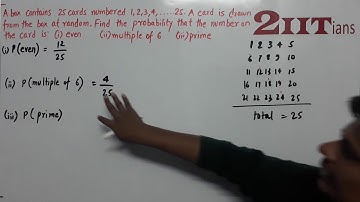 A box contains 25 cards numbered 1,2,3,4,.....25. A card is drawn
from the box at random. Find the probability that the number on
the card is: (i) even (ii) multiple of 6 (iii) prime
2IITians
(i) P(even) = 12/25
(ii) P(multiple of 6) = 4/25
(iii) P(prime)
1 2 3 4 5
6 7 8 9 10
11 12 13 14 15
16 17 18 19 20
21 22 23 24 25
total = 25